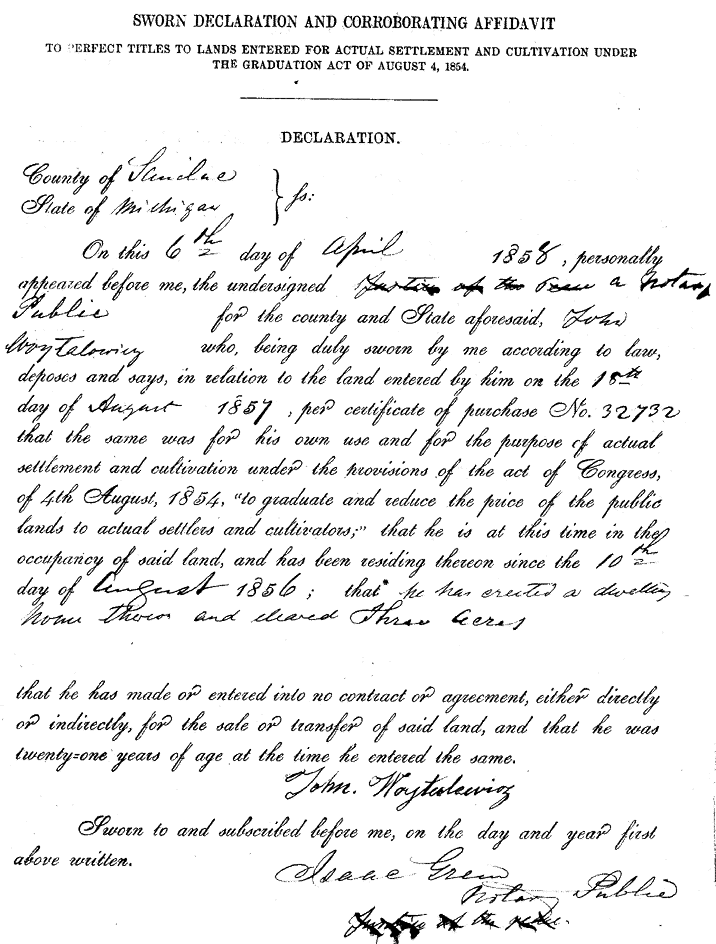 SWORN DECLARATION AND CORROBORATING AFFIDAVIT
TO PERFECT TITLES TO LANDS ENTERED FOR ACTUAL SETTLEMENT AND CULTIVATION UNDER
THE GRADUATION ACT OF AUGUST 4, 1854.
DECLARATION.
County of Sanilac
State of Michigan } ss:
On this 6th day of April 1858, personally
appeared before me, the undersigned Justice of the Peace a Notary
Public for the county and State aforesaid, John
Woytalewicz who, being duly sworn by me according to law,
deposes and says, in relation to the land entered by him on the 18th
day of August 1857, per certificate of purchase No. 32732
that the same was for his own use and for the purpose of actual
settlement and cultivation under the provisions of the act of Congress,
of 4th August, 1854, "to graduate and reduce the price of the public
lands to actual settlers and cultivators;" that he is at this time in the
occupancy of said land, and has been residing thereon since the 10th
day of August 1856; that he has erected a dwelling
house thereon and cleared Three Acres
that he has made or entered into no contract or agreement, either directly
or indirectly, for the sale or transfer of said land, and that he was
twenty=one years of age at the time he entered the same.
John. Woytalewicz
Sworn to and subscribed before me, on the day and year first
above written.
Isaac Green
Notary Public
Justice of the peace.